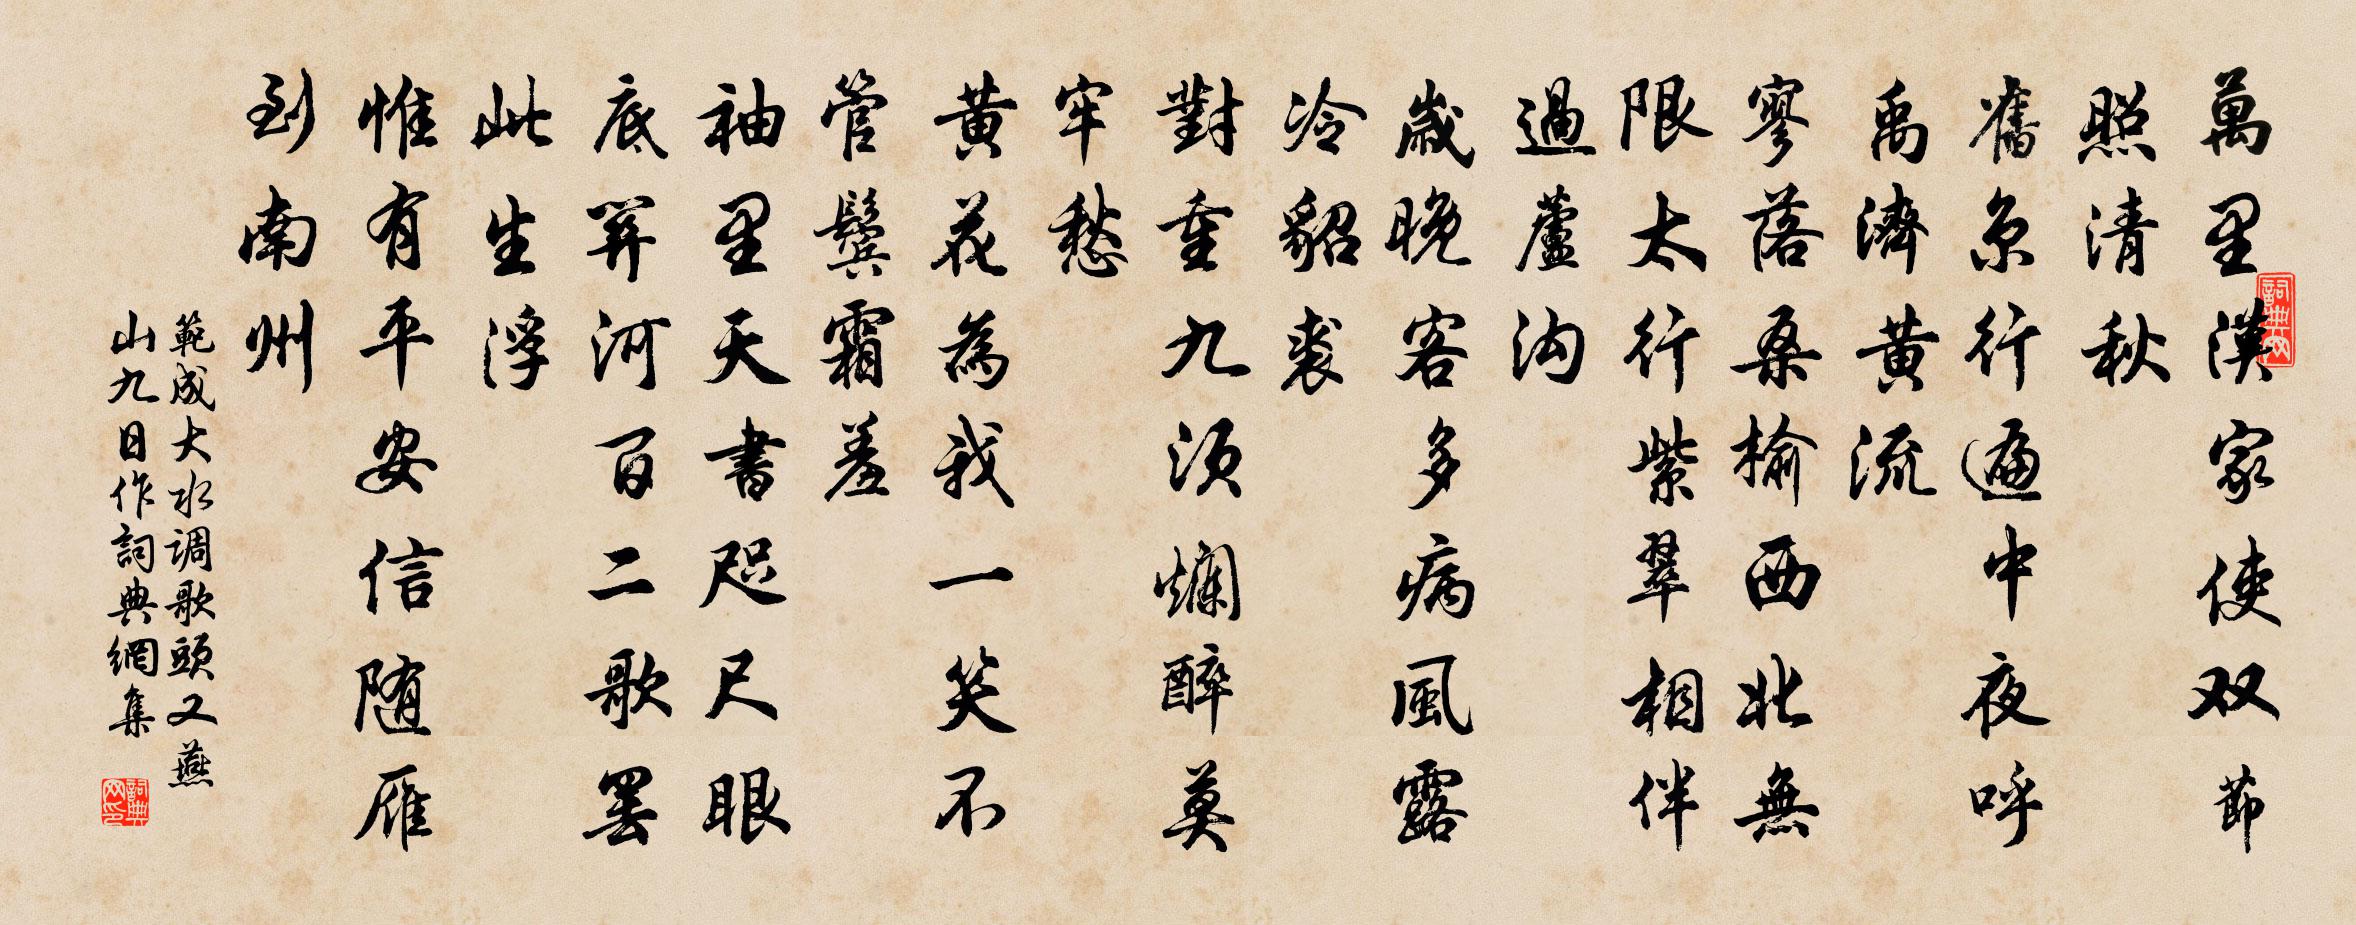 萬里漢家使双節
照清秋
舊京行遍中夜呼
禹濟黄流
寥落桑榆西北無
限太行紫翠相伴
過蘆沟
歲晚客多病風露
冷貂裘
對重九須爛醉莫
牢愁
黄花為我一笑不
管鬓霜羞
袖里天書咫尺眼
底關河百二歌罢
此生浮
惟有平安信随雁
到南州
範成大水调歌頭又燕
山九日作詞典網集
詞典网
詞典网印